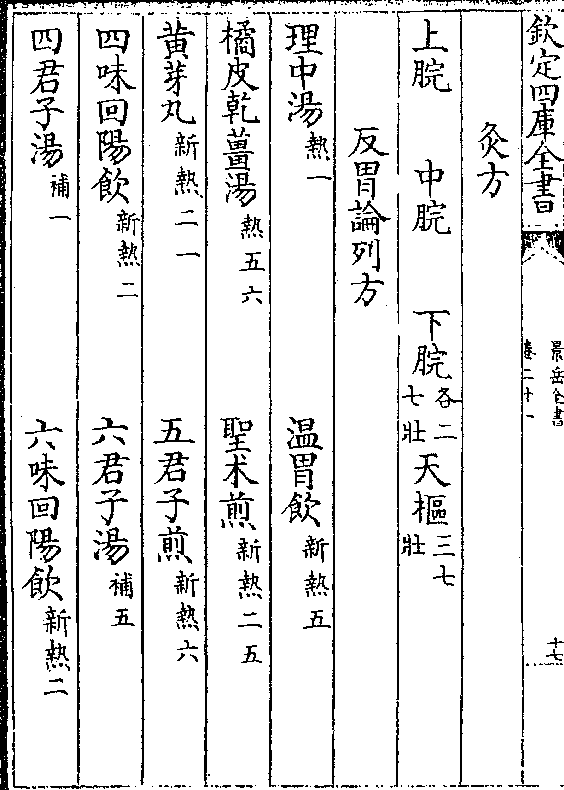 欽定四庫全書 景岳全書 卷二十一 十七
灸方
上脘 中脘 下脘各二七壯 天樞三七壯
反胃論列方
理中湯熱一 温胃飲新熱五
橘皮乾薑湯熱五六 聖术煎新熱二五
黄芽丸新熱二一 五君子煎新熱六
四味回陽飲新熱二 六君子湯補五
四君子湯補一 六味回陽飲新熱二